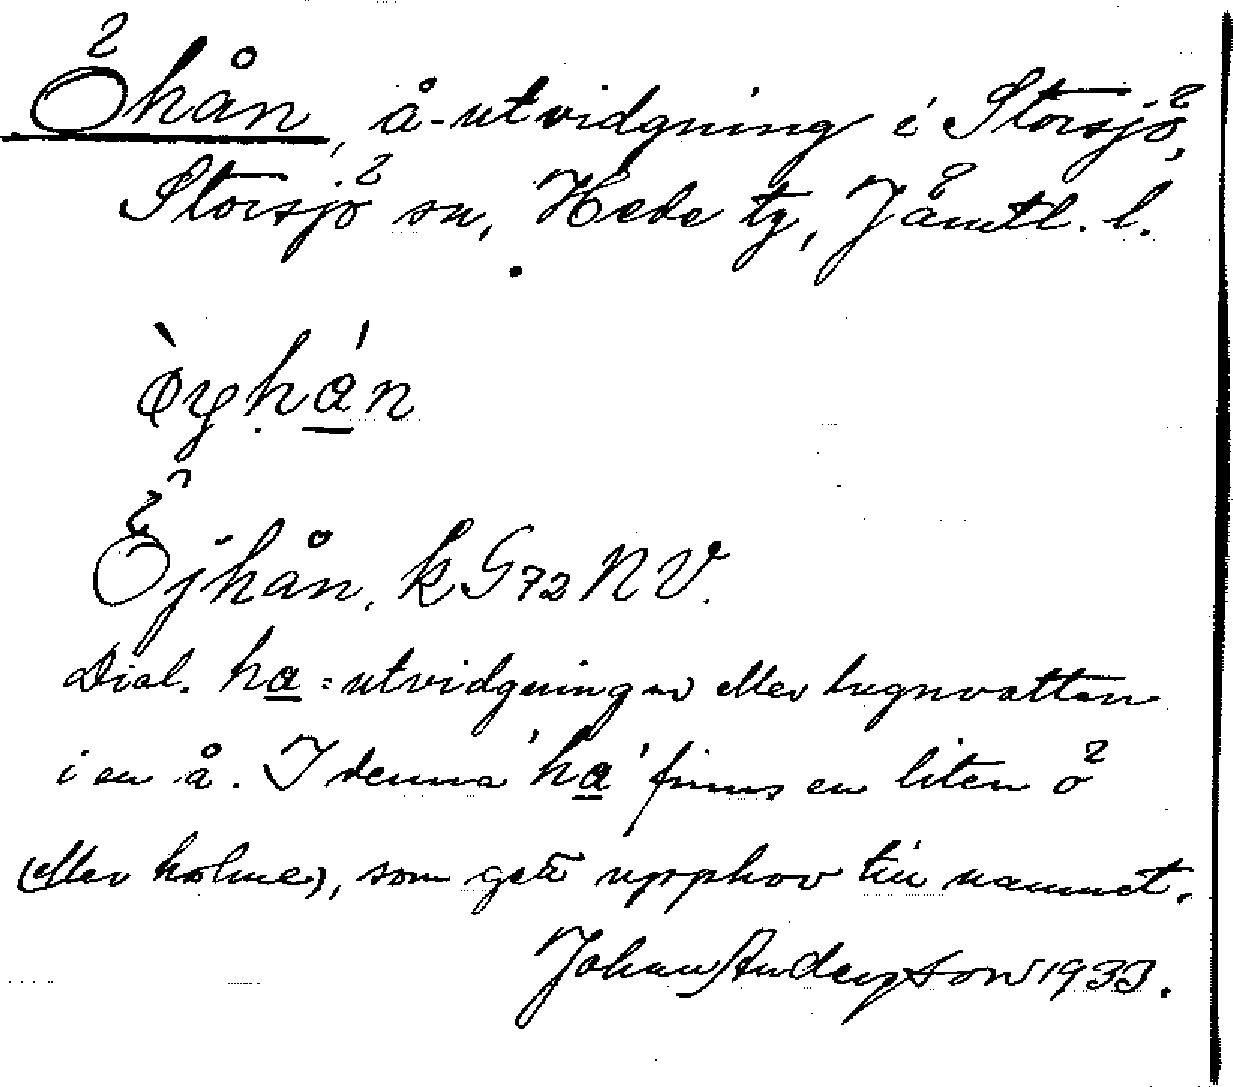 Öhån, å-utvidgning i Storsjö,
Storsjö sn, Hede tg, Jämtl. l.
Öjhån. k G72 NV.
Dial. ha = utvidgningen eller lugnvatten
i en å. I denna 'ha' finns en liten ö
(eller holme), som gett upphov till namnet.
Johan Andersson 1933.